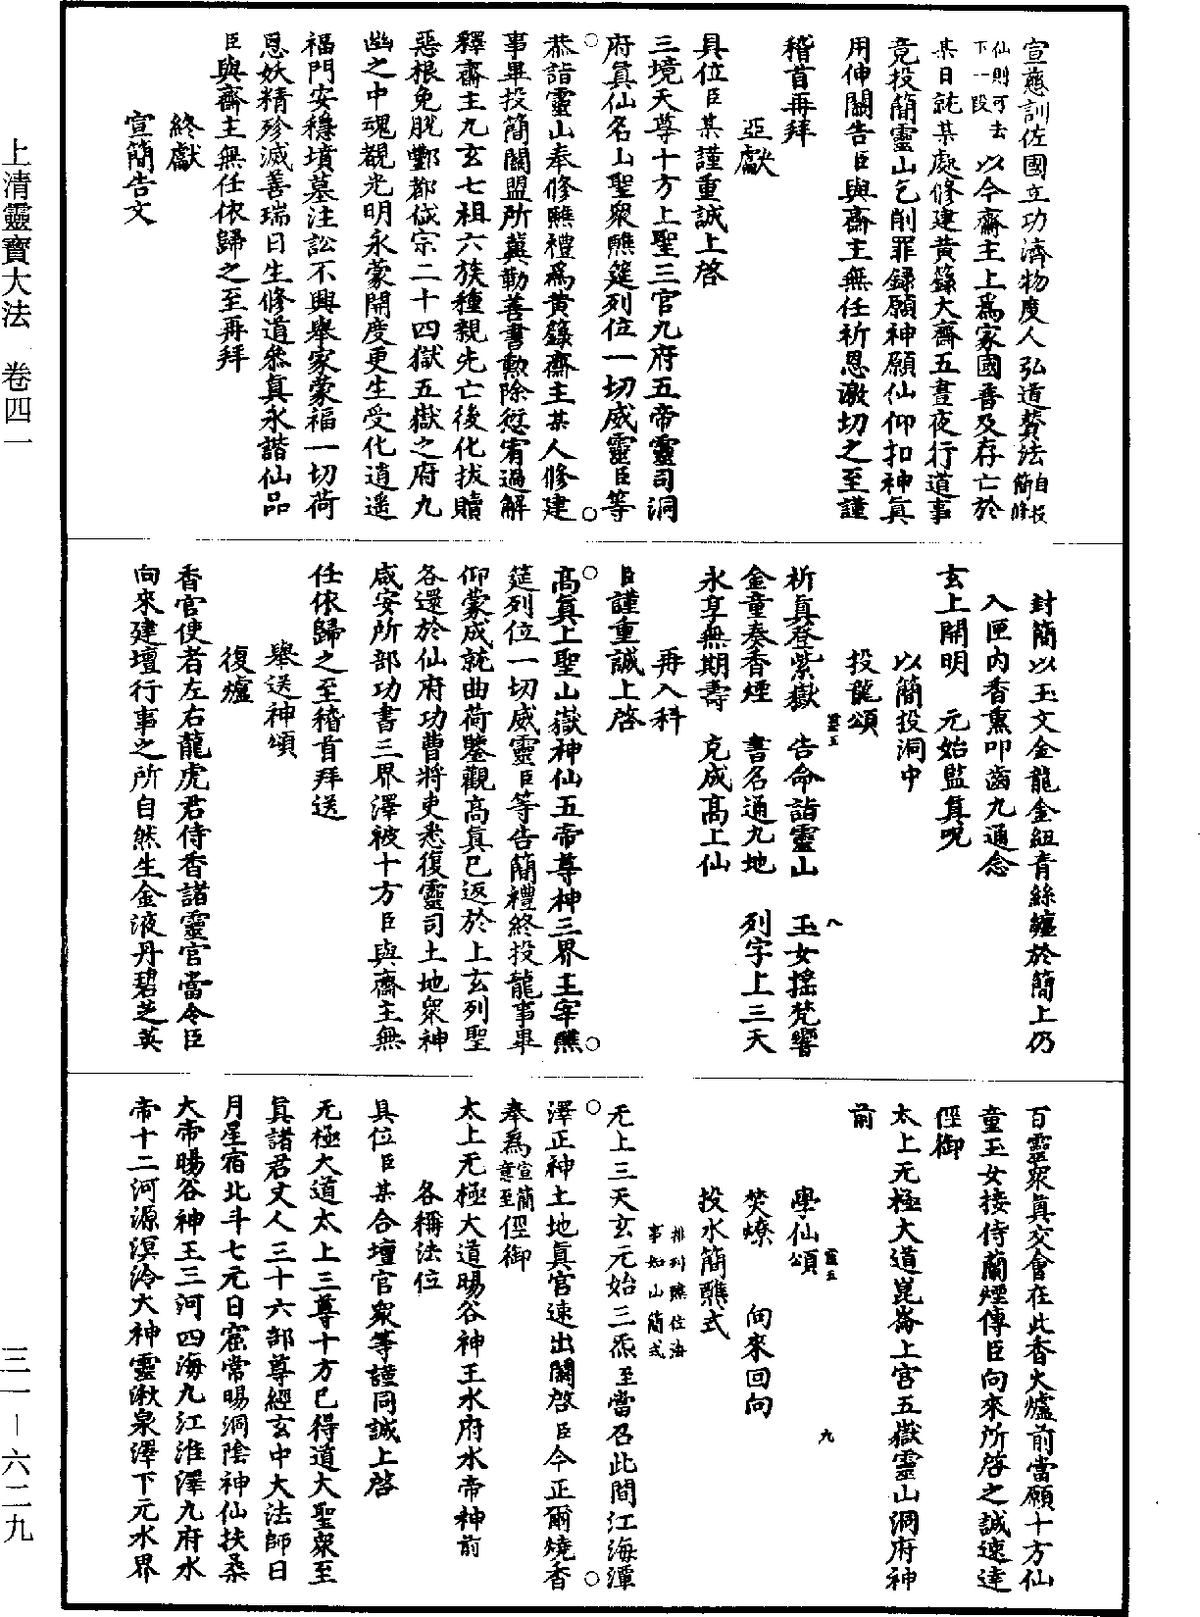 宣慈訓佐國立功濟物度人弘道贊法自投簡
仙則可去下一段以今齋主上爲家國普及存亡於
某日就某處修建黃籙大齋五晝夜行道事
竟投簡靈山乞削罪錄願神願仙仰扣神眞
用伸關告臣與齋主無任祈恩激切之至謹
稽首再拜
亞獻
具位臣某謹重誠上啓
三境天尊十方上聖三官九府五帝靈司洞
府眞仙名山聖衆醮筵列位一切威靈臣等
恭詣靈山奉修醮禮爲黃籙齋主某人修建
事畢投簡關盟所冀勒善書勲除愆宥過解
釋齋主九玄七祖六族種親先亡後化拔贖
惡根免脫酆都岱宗二十四獄五嶽之府九
幽之中魂覩光明永蒙開度更生受化逍遥
福門安穩墳墓注訟不興舉家蒙福一切荷
恩妖精殄滅善瑞日生修道叅眞永諧仙品
臣與齋主無任依歸之至再拜
終獻
宣簡告文
封簡以玉文金龍金紐青絲纏於簡上仍
入匣内香熏叩齒九通念
玄上開明 元始監眞呪
以簡投洞中
投龍頌
祈眞登紫嶽 告命詣靈山 玉女搖梵響
金童奏香煙 書名通九地 列字上三天
永享無期壽 克成高上仙
再入科
臣謹重誠上啓
高眞上聖山嶽神仙五帝尊神三界主宰醮
筵列位一切威靈臣等告簡禮終投龍事畢
仰蒙成就曲荷鑒觀高眞已返於上玄列聖
各還於仙府功曹將吏悉復靈司土地衆神
咸安所部功書三界澤被十方臣與齋主無
任依歸之至稽首拜送
舉送神頌
復爐
香官使者左右龍虎君侍香諸靈官當令臣
向來建壇行事之所自然生金液丹碧芝英
百靈衆眞交會在此香火爐前當願十方仙
童玉女接侍蘭煙傳臣向來所啓之誠速達
徑御
太上无極大道崑崙上宮五嶽靈山洞府神
前
學仙頌
焚燎 回來回向
投水簡醮式
排列醮位海
事如山簡式
无上三天玄元始三炁至當召此間江海潭
澤正神土地眞官速出關啓臣今正爾燒香
奉爲宣簡意至徑御
太上无極大道暘谷神王水府水帝神前
各稱法位
具位臣某合壇官衆等謹同誠上啓
无極大道太上三尊十方已得道大聖衆至
眞諸君丈人三十六部尊經玄中大法師日
月星宿北斗七元日窟常暘洞陰神仙扶桑
大帝暘谷神王三河四海九江淮澤九府水
帝十二河源溟泠大神靈湫泉澤下元水界
上清靈寶大法 卷四一
三一－六二九